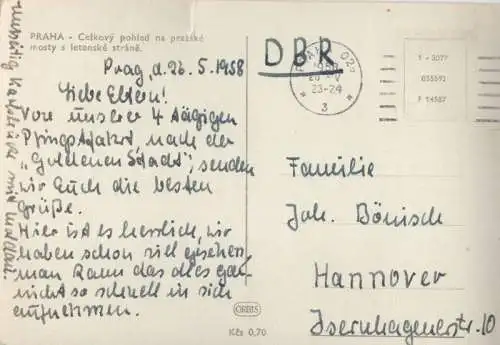 PRAHA - Celkový pohled na pražské
mosty s letenské stráně.
Prag, d. 26.5.1958
Liebe Eltern!
Von unserer 4 tägigen
Pfingstfahrt, nach der
"Goldenen Stadt", senden
wir Euch die besten
Grüße.
Hier ist es herrlich, wir
haben schon viel gesehen,
man kann das alles gar
nicht so schnell in sich
aufnehmen.
mit
DBR
PRAHA 022
1958
23-24
3
Familie
Joh. Bönisch
Hannover
Isernhagenerstr. 10
ORBIS
Kčs 0,70